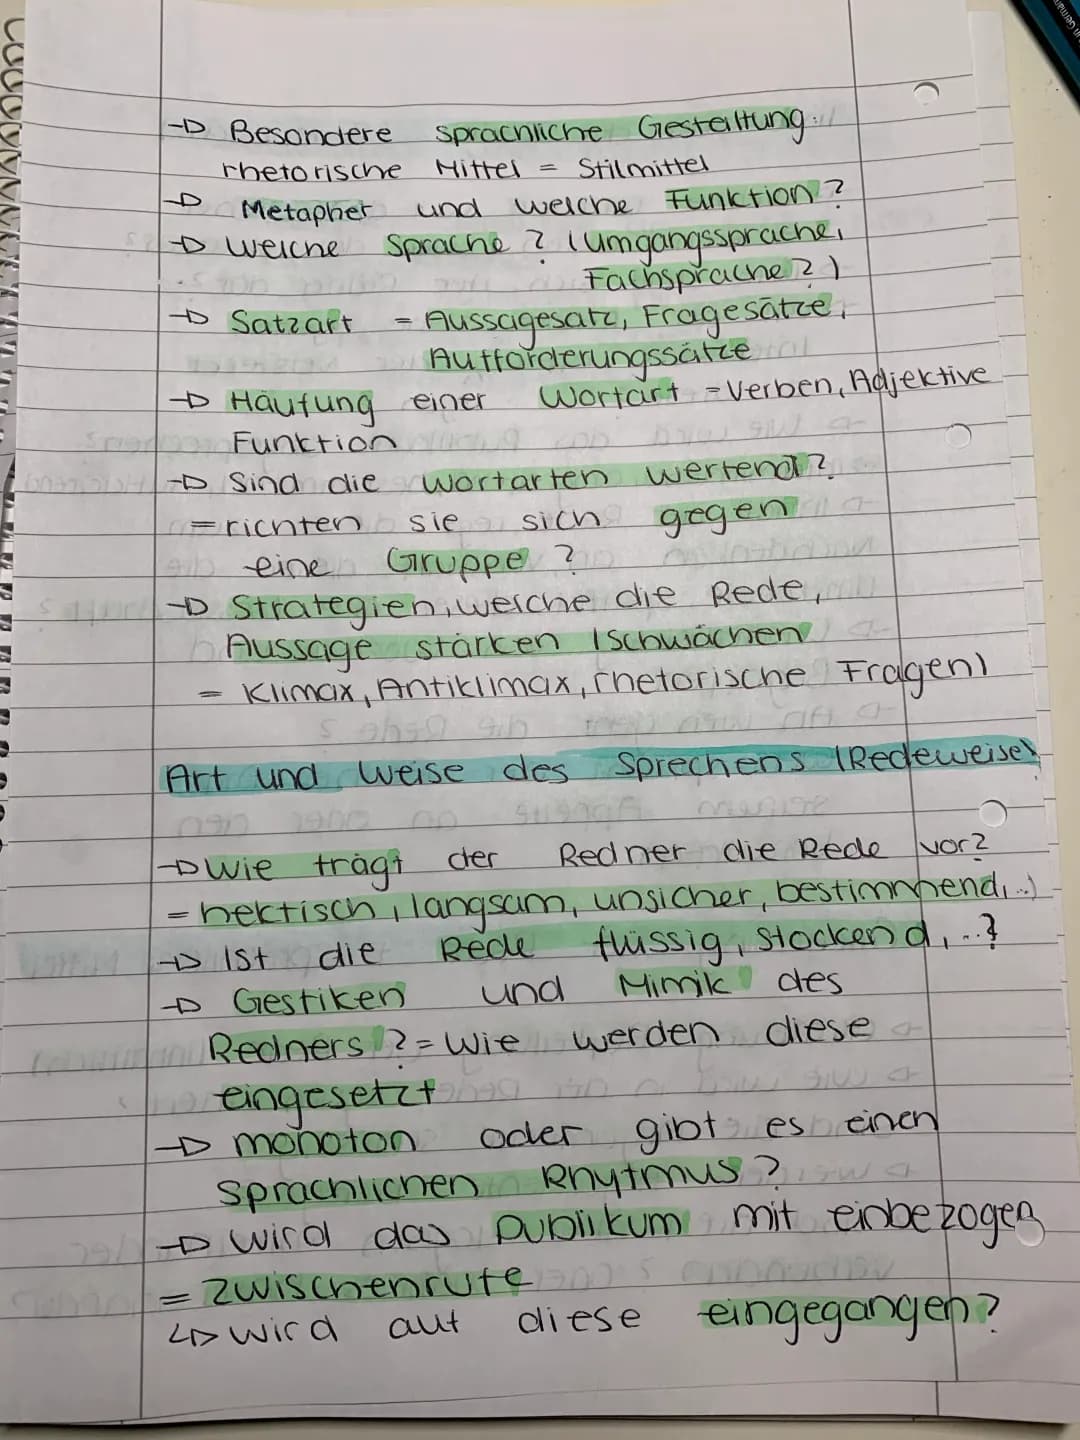 → Besondere sprachliche Gestaltung:
rhetorische Mittel = Stilmittel
→ Metapher und welche Funktion?
→ Welche Sprache? (Umgangssprache,
Fachsprache?)
→ Satzart = Aussagesatz, Fragesätze,
Aufforderungssätze
→ Häufung einer Wortart = Verben, Adjektive
Funktion
→ Sind die Wortarten wertend?
= richten sie sich gegen
eine Gruppe?
→ Strategien, welche die Rede,
Aussage stärken / schwächen
= Klimax, Antiklimax, rhetorische Fragen)
Art und Weise des Sprechens (Redeweise)
→ Wie trägt der Redner die Rede vor?
= hektisch, langsam, unsicher, bestimmend, ..)
→ Ist die Rede flüssig, stockend, ..?
→ Gestiken und Mimik des
Redners? = Wie werden diese
eingesetzt
→ monoton oder gibt es einen
sprachlichen Rhytmus?
→ wird das Publikum mit einbezogen
= Zwischenrufe
↳ wird auf diese eingegangen?